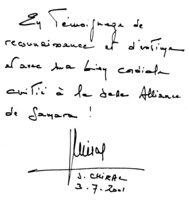 En témoignage de
reconnaissance et d'estime
et avec ma bien cordiale
amitié à la belle Alliance
de Samara !
J. CHIRAC
3.7.2001